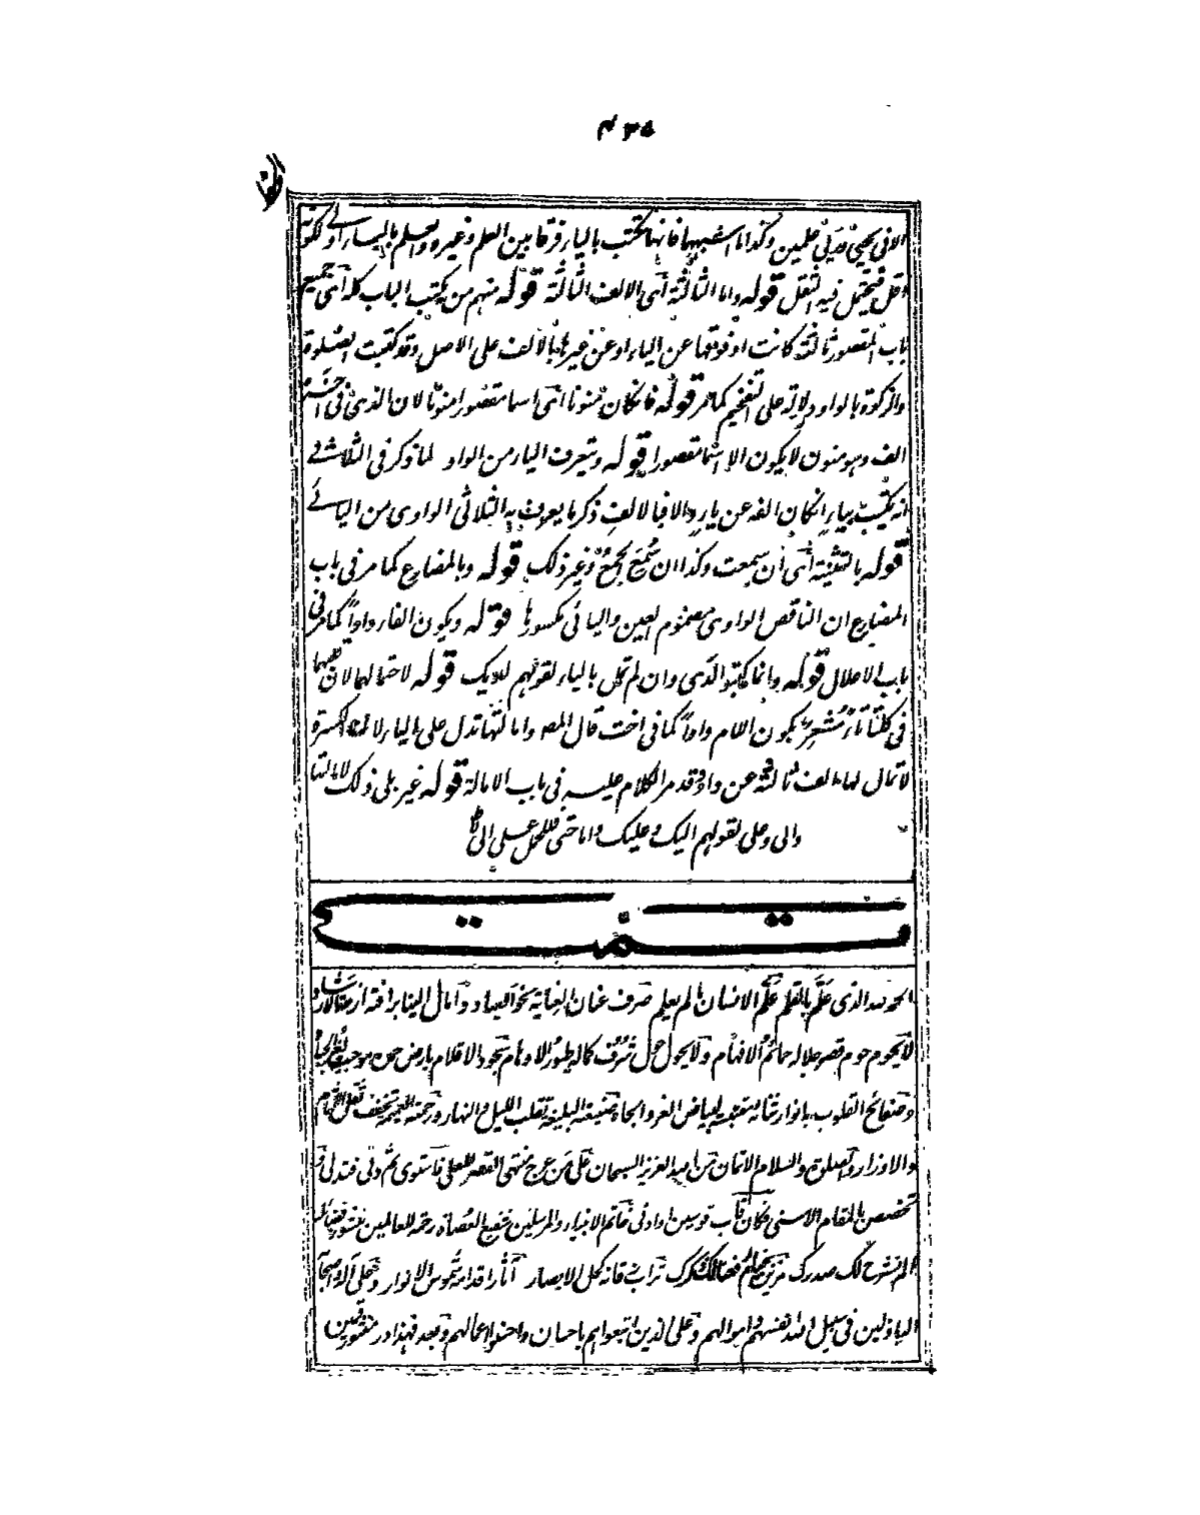 ۴۳۵
الا في يحيى وريى علمين وكذا ما اشبهها فانها تكتب بالياء فرقا بين العلم وغيره والعلم بالياء اولى لكونه
اقل فيحتمل فيه الثقل قوله واما الثالثة اى الالف الثالثة قوله منهم من يكتب الباب كله اى جميع
باب المقصور ثالثة كانت او فوقها عن الياء او عن غيرها بالالف على الاصل وقد كتبت الصلوة
والزكوة بالواو دلالة على التفخيم كما مر قوله فان كان منونا اى اسما مقصورا منونا لان الذى في آخره
الف وهو منون لا يكون الا اسما مقصورا قوله ويتعرف الياء من الواو لما ذكر فى الثلاثى
انه يكتب بياء ان كان الفه عن ياء والا فبالالف ذكر ما يعرف به الثلاثى الواوى من اليائى
قوله بالتثنية اى ان سمعت وكذا ان سمع الجمع وغير ذلك قوله وبالمضارع كما مر فى باب
المضارع ان الناقص الواوى مضموم العين واليائى مكسورها قوله وبكون الفاء واوا كما مر فى
باب الاعلال قوله وانما كتبوا لدى وان لم تمل بالياء لقولهم لديك قوله لاحتمالها لان قلبها
فى كلتا تاء مشعر بكون اللام واوا كما فى اخت قال المص وامالتها تدل على الياء لان الكسرة
لا تمال لها الف ثالثة عن واو وقد مر الكلام عليه فى باب الامالة قوله غير بلى وذلك لامالتها
والى وعلى لقولهم اليك وعليك واما حتى فللحمل على الى
تمت
الحمد لله الذى علم بالقلم علم الانسان ما لم يعلم صرف عنان العناية نحو العباد وامال الينا برافته
لا يحوم حوم قصر جلاله حائم الافهام ولا يحول حول شرف كماله طيور الاوهام بجود الاقلام بارض
وصفائح القلوب بانوار ثنائه البليغة تقلب الليل والنهار ورحمته العميمة تخفف ثقل الآثام
والاوزار والصلوة والسلام الاتمان من العزيز السبحان على من عرج منتهى القصر المعلى فاستوى ثم دنى فتدلى
تخصص بالمقام الاسنى فكان قاب قوسين او ادنى خاتم الانبياء والمرسلين شفيع العصاة رحمة للعالمين
الم نشرح لك صدرك تراب كحل الابصار آثار اقدامه شموس الانوار وعلى آله واصحابه
الباذلين فى سبيل الله انفسهم واموالهم وعلى الذين اتبعوهم باحسان واحسنوا اعمالهم وبعد فهذا در منثور